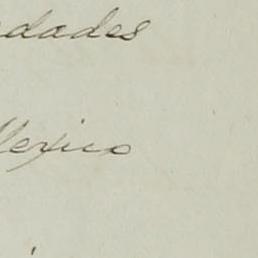 dades
Mexico